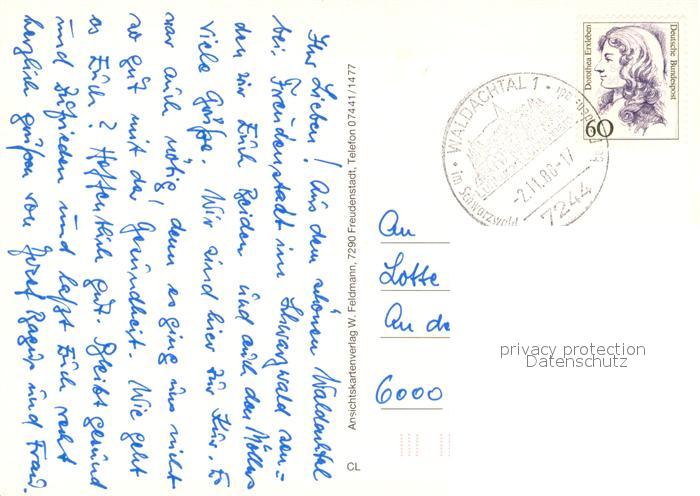 Ihr Lieben! Aus dem schönen Waldachtal
bei Freudenstadt im Schwarzwald sen=
den wir Euch Beiden und auch den Möllers
viele Grüße. Wir sind hier zur Kur. Es
war auch nötig, denn es ging uns nicht
so gut mit der Gesundheit. Wie geht
es Euch? Hoffentlich gut. Bleibt gesund
und zufrieden und laßt Euch recht
herzlich grüßen von Josef und Frau.
Ansichtskartenverlag W. Feldmann, 7290 Freudenstadt, Telefon 07441/1477
CL
WALDACHTAL 1
im Schwarzwald
-2.11.88-17
7244
Dorothea Erxleben
Deutsche Bundespost
60
An
Lotte
An de
6000
privacy protection
Datenschutz